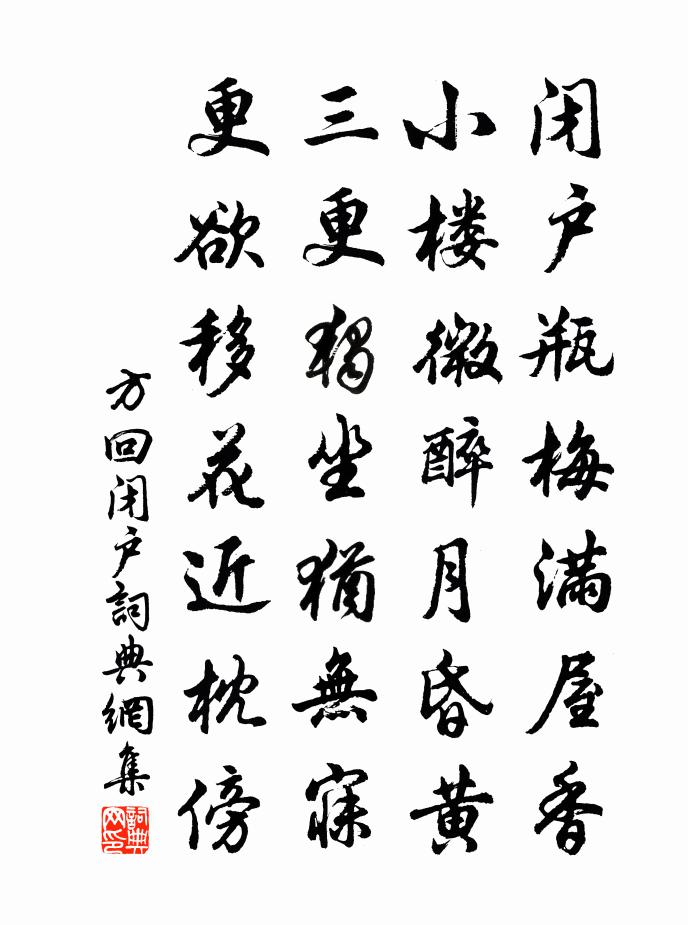 闭户瓶梅满屋香
小楼微醉月昏黄
三更独坐犹無寐
更欲移花近枕傍
方回闭户詞典網集
詞典网印